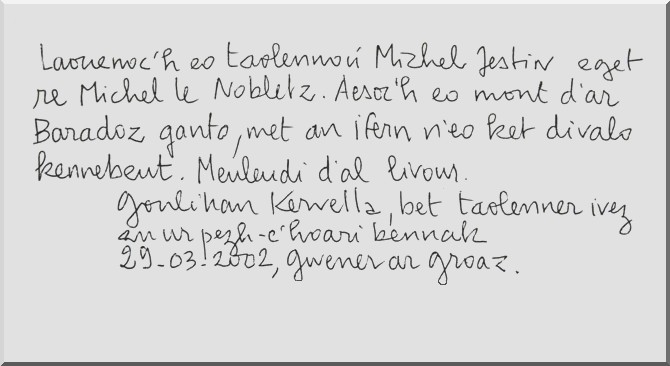 Laouenoc'h eo taolennoù Mizhel Jestin eget
re Michel le Nobletz. Aesoc'h eo mont d'ar
Baradoz ganto, met an ifern n'eo ket divalo
kennebeut. Meuleudi d'al livour.
Goulihan Kervella, bet taolenner ivez
en ur pezh-c'hoari bennak
29-03-2002, gwener ar groaz.